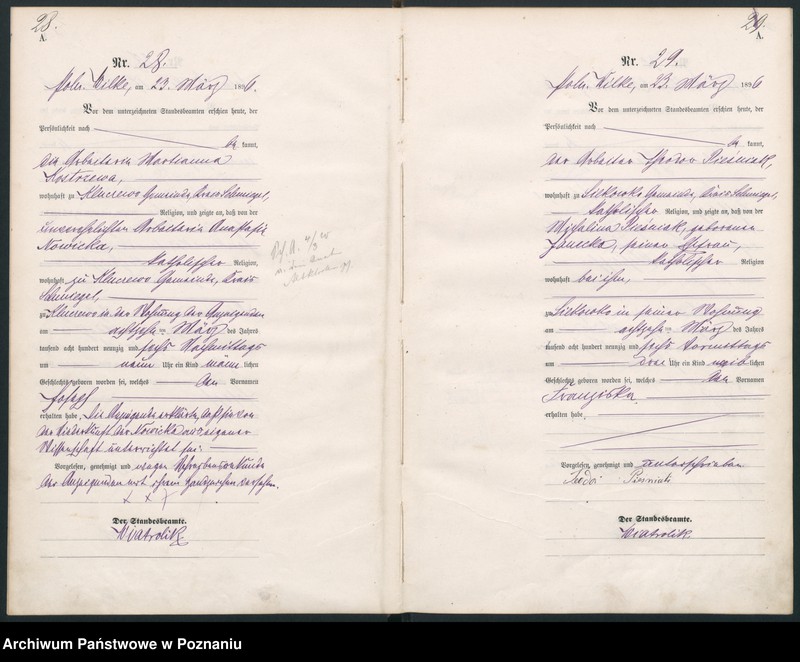 28.
A.
Nr. 28.
Poln. Wilke, am 23. März 1896.
Vor dem unterzeichneten Standesbeamten erschien heute, der
Persönlichkeit nach
be kannt,
die Arbeiterin Marianna
Kostrzewa,
wohnhaft zu Kluczewo Gemeinde, Kreis Schmiegel,
Religion, und zeigte an, daß von der
unverehelichten Arbeiterin Anastasia
Nowicka,
katholischer Religion,
wohnhaft zu Kluczewo Gemeinde, Kreis
Schmiegel,
zu Kluczewo in der Wohnung der Anzeigenden
am achtzehnten März des Jahres
tausend acht hundert neunzig und sechs Nachmittags
um neun Uhr ein Kind männ lichen
Geschlechts geboren worden sei, welches den Vornamen
Joseph
erhalten habe. Die Anzeigende erklärte, daß sie von
der Niederkunft der Nowicka aus eigener
Wissenschaft unterrichtet sei.
Vorgelesen, genehmigt und wegen Schreibensunkunde
der Anzeigenden mit ihrem Handzeichen versehen.
x x x
Der Standesbeamte.
Wiatrolik
29.
A.
Nr. 29.
Poln. Wilke, am 23. März 1896
Vor dem unterzeichneten Standesbeamten erschien heute, der
Persönlichkeit nach
be kannt,
der Arbeiter Theodor Pieśniak,
wohnhaft zu Sielkowko Gemeinde, Kreis Schmiegel,
katholischer Religion, und zeigte an, daß von der
Michalina Pieśniak, geborenen
Janecka, seiner Ehefrau,
katholischer Religion
wohnhaft bei ihm,
zu Sielkowko in seiner Wohnung
am achtzehnten März des Jahres
tausend acht hundert neunzig und sechs Vormittags
um drei Uhr ein Kind weib lichen
Geschlechts geboren worden sei, welches den Vornamen
Franziska
erhalten habe
Vorgelesen, genehmigt und unterschrieben
Der Standesbeamte.
Wiatrolik
Archiwum Państwowe w Poznaniu